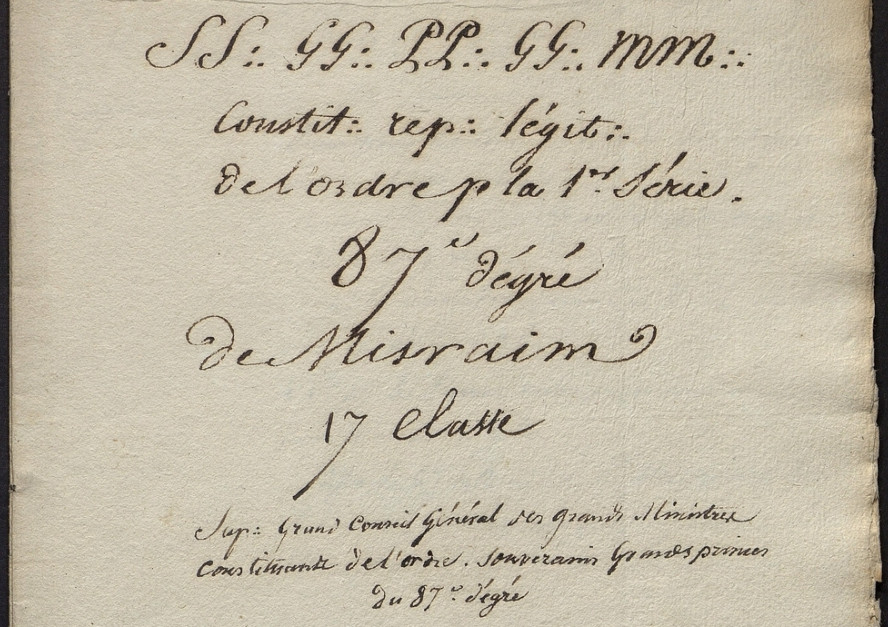 SS∴ GG∴ PP∴ GG∴ MM∴
Constit∴ rep∴ légit∴
de l'ordre p la 1re Série.
87e dégré
de Misraim
17 Classe
Sup∴ Grand Conseil Général des grands Ministres
Constituants de l'ordre. Souverains Grands princes
du 87e dégré